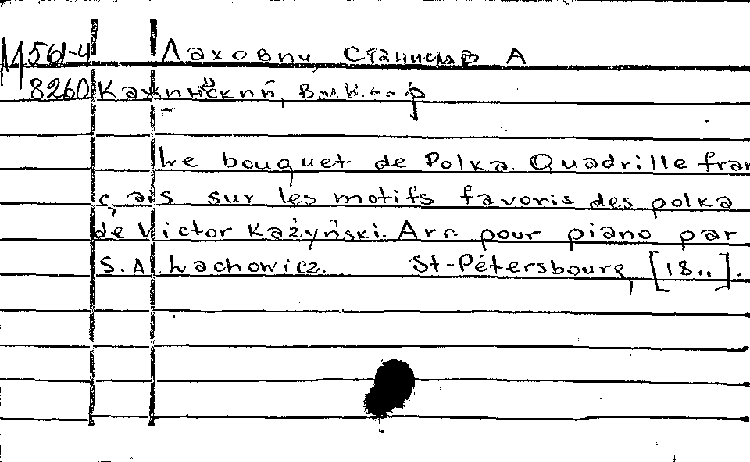 М 561-4 Лахович, Станислав А
8260 Кажинский, Виктор
Le bouquet de Polka. Quadrille fran
çais sur les motifs favoris des polka
de Victor Każyński. Arr. pour piano par
S. A. Lachowicz. St-Pétersbourg, [18..].